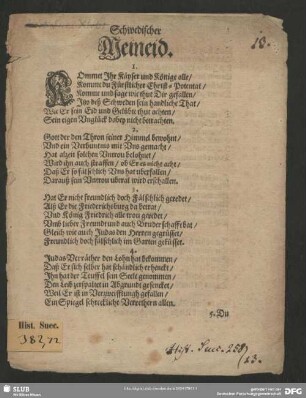 Schwedischer
Meineid.
10.
1.
Kommet Ihr Käyser und Könige alle/
Komme du Fürstlicher Christ-Potentat/
Komme und sage wie thut Dir gefallen/
Deß Schweden sein handliche That/
Wie Er sein Eid und Gelübte thut achten/
Sein eigen Unglück dabey nicht betrachten.
2.
Gott der den Thron seiner Himmel bewohnt/
Und ein Verbüntnis mit Uns gemacht/
Hat alzeit solchen Untreu belohnet/
Wird ihn auch straffen/ ob Er es nicht acht/
Daß Er so fälschlich Uns hat überfallen/
Darauß sein Untreu überal wird erschallen.
3.
Hat Er nicht freundlich doch fälschlich geredet/
Alß Er die Friederichsburg da betrat/
Und König Friedrich alle
Unß lieber Freund und auch Bruder
Gleich wie auch Judas den Herren gegrüsset/
Freundlich doch fälschlich im Garten geküsset.
4.
Judas Verräther den Lohn hat bekommen/
Daß Er sich selber hat schändlich erhenckt/
Ihn hat der Teuffel sein Seele genommen/
Den Leib zerspalten in Abgrund gesencket/
Weil Er ist in Verzweifflung gefallen/
Ein Spiegel schreckliche Verräthern allen.
5. Du
Hist. Suec.
382,22
Hist. Suec. 258
23.
SLUB